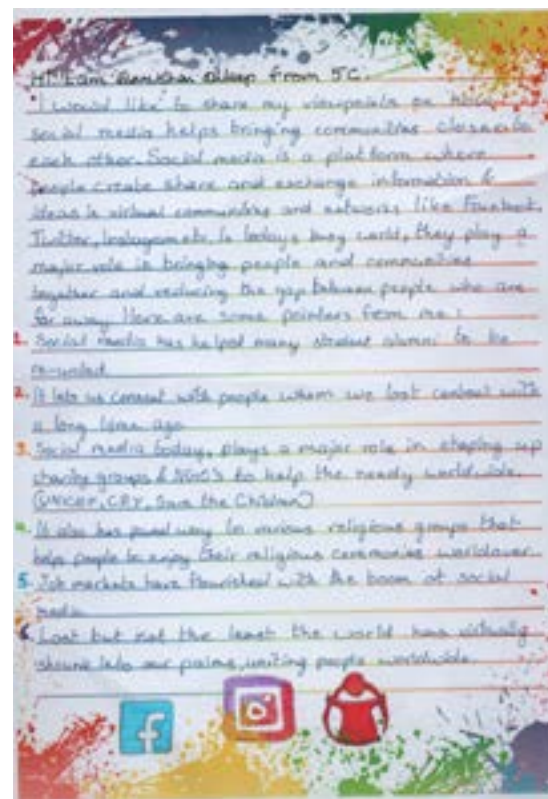 Hi! I am from 5C.
I would like to share my viewpoints on how
social media helps bringing communities closer to
each other. Social media is a platform where
people create share and exchange information &
ideas in virtual communities and networks like Facebook,
Twitter, Instagram etc. In todays busy world, they play a
major role in bringing people and communities
together and reducing the gap between people who are
far away. Here are some pointers from me :
1. Social media has helped many student alumni to be
re-united.
2. It lets us connect with people whom we lost contact with
a long time ago
3. Social media today, plays a major role in shaping up
charity groups & NGO's to help the needy worldwide.
(UNICEF, CRY, Save the Children)
4. It also has paved way to various religious groups that
help people to enjoy their religious ceremonies worldover.
5. Job markets have flourished with the boom of social
media
6. Last but not the least the world has virtually
shrunk into our palms, uniting people worldwide.
f